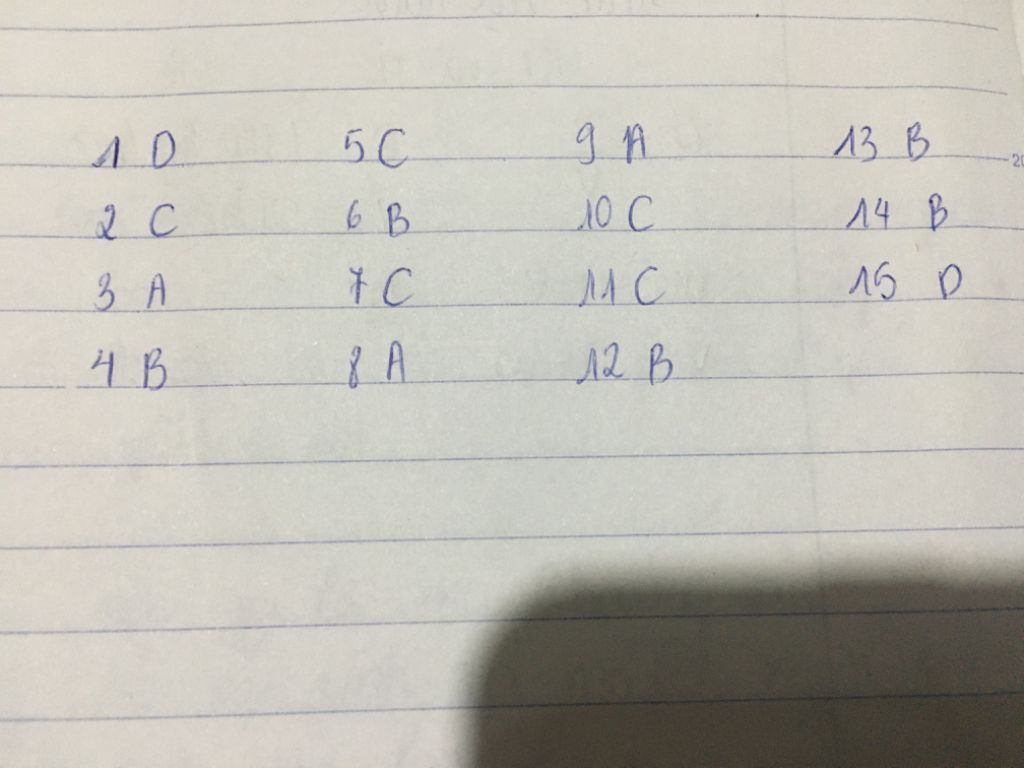 1 D 5 C 9 A 13 B
2 C 6 B 10 C 14 B
3 A 7 C 11 C 15 D
4 B 8 A 12 B